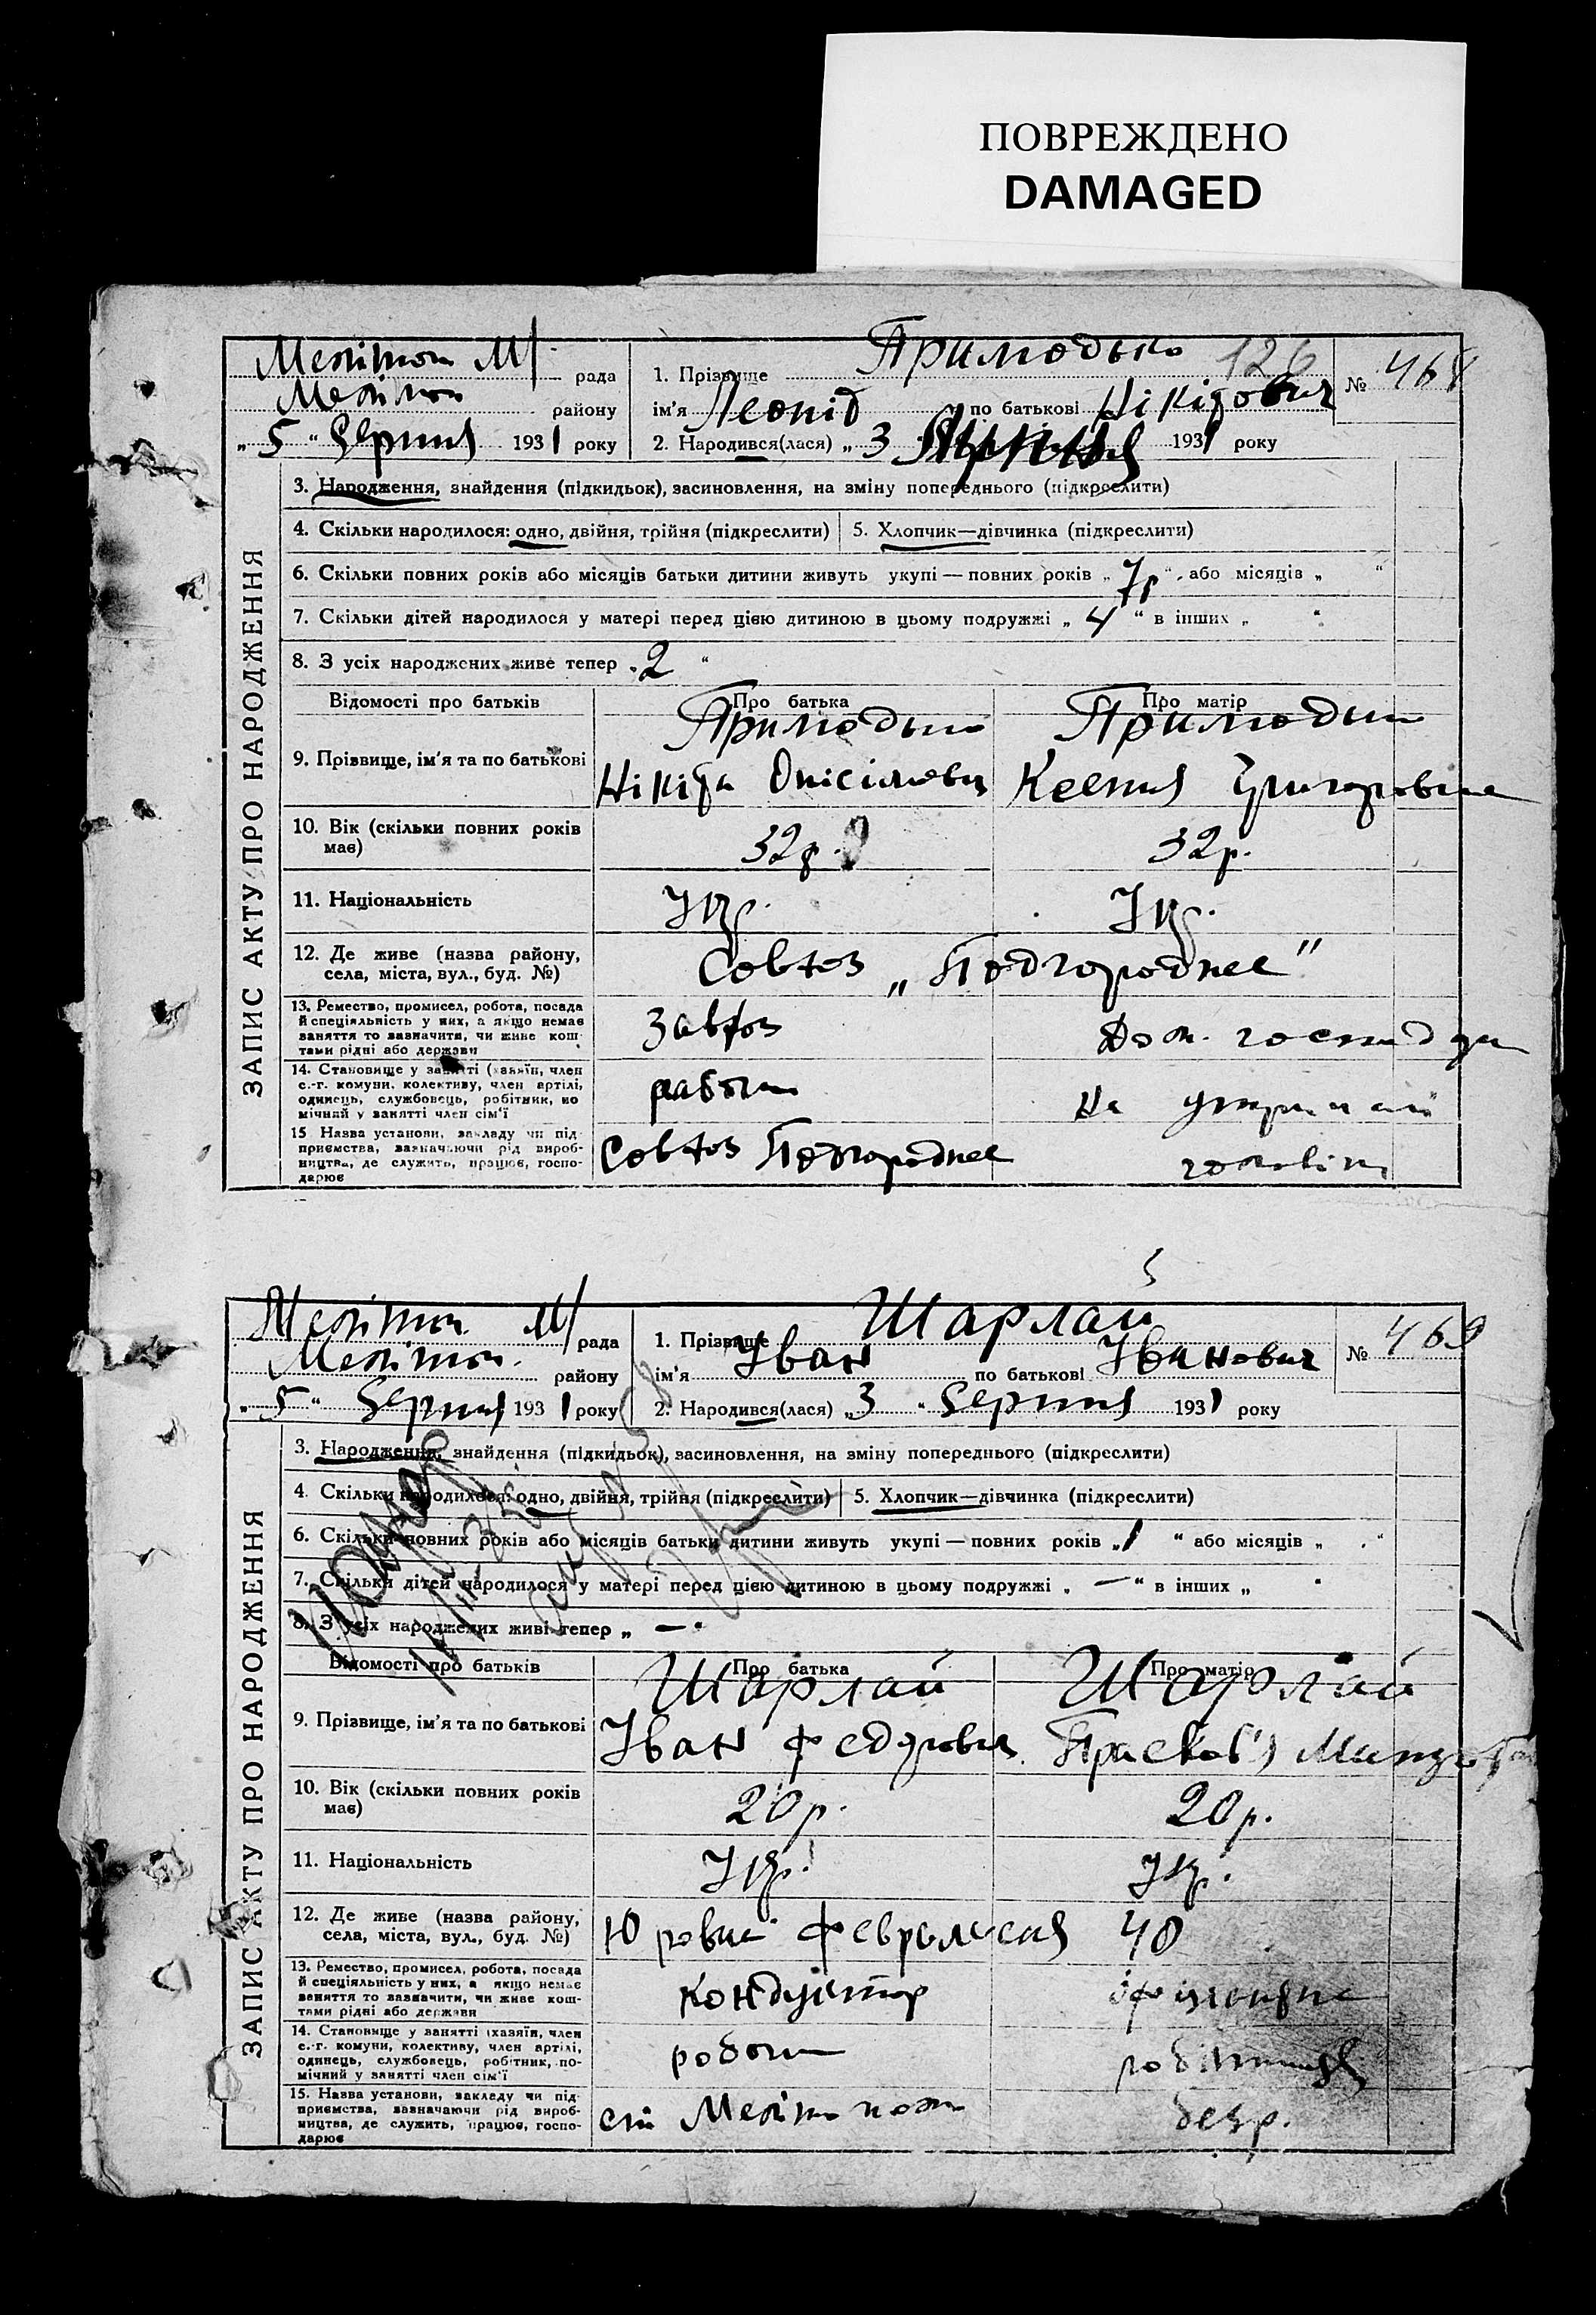 ПОВРЕЖДЕНО
DAMAGED
Меліт М/ рада
1. Прізвище 126
№ 468
району
ім'я Леонід по батькові Нікітович
„5“ Серпня 1931 року
2. Народився(лася) „3 1931 року
3. Народження, знайдення (підкидьок), засиновлення, на зміну попереднього (підкреслити)
4. Скільки народилося: одно, двійня, трійня (підкреслити)
5. Хлопчик—дівчинка (підкреслити)
6. Скільки повних років або місяців батьки дитини живуть укупі — повних років „7р“, або місяців „ “
7. Скільки дітей народилося у матері перед цією дитиною в цьому подружжі „4“ в інших „ “
8. З усіх народжених живе тепер „2“
ЗАПИС АКТУ ПРО НАРОДЖЕННЯ
Відомості про батьків
Про батька
Про матір
9. Прізвище, ім'я та по батькові
Нікіта Онісімович
Ксенія Григоровна
10. Вік (скільки повних років має)
32р.
32р.
11. Національність
Укр.
Укр.
12. Де живе (назва району,
села, міста, вул., буд. №)
Совхоз „Подгороднее“
13. Ремество, промисел, робота, посада
й спеціяльність у них, а якщо немає
заняття то зазначити, чи живе кош-
тами рідні або держави
Дом. господар
14. Становище у занятті (хазяїн, член
с.-г. комуни, колективу, член артілі,
одинець, службовець, робітник, по
мічний у занятті член сім'ї
На
15 Назва установи, закладу чи під
приємства, зазначаючи рід вироб-
ництва, де служить, працює, госпо-
дарює
Совхоз Подгороднее
Меліт М/ рада
1. Прізвище Шарлай
№ 469
району
ім'я Іван по батькові Іванович
„5“ Серпня 1931 року
2. Народився(лася) „3“ Серпня 1931 року
3. Народження, знайдення (підкидьок), засиновлення, на зміну попереднього (підкреслити)
4. Скільки народилося: одно, двійня, трійня (підкреслити)
5. Хлопчик—дівчинка (підкреслити)
6. Скільки повних років або місяців батьки дитини живуть укупі — повних років „1“ або місяців „ “
7. Скільки дітей народилося у матері перед цією дитиною в цьому подружжі „—“ в інших „ “
8. З усіх народжених живі тепер „—“
ЗАПИС АКТУ ПРО НАРОДЖЕННЯ
Відомості про батьків
Про батька
Про матір
Шарлай
Шарлай
9. Прізвище, ім'я та по батькові
Іван Федорович
Прасков'я
10. Вік (скільки повних років
має)
20р.
20р.
11. Національність
Укр.
Укр.
12. Де живе (назва району,
села, міста, вул., буд. №)
Февральская 40
13. Ремество, промисел, робота, посада
й спеціяльність у них, а якщо немає
заняття то зазначити, чи живе кош-
тами рідні або держави
Кондуктор
14. Становище у занятті (хазяїн, член
с.-г. комуни, колективу, член артілі,
одинець, службовець, робітник, по-
мічний у занятті член сім'ї
робітниця
15. Назва установи, закладу чи під
приємства, зазначаючи рід вироб-
ництва, де служить, працює, госпо-
дарює
безр.